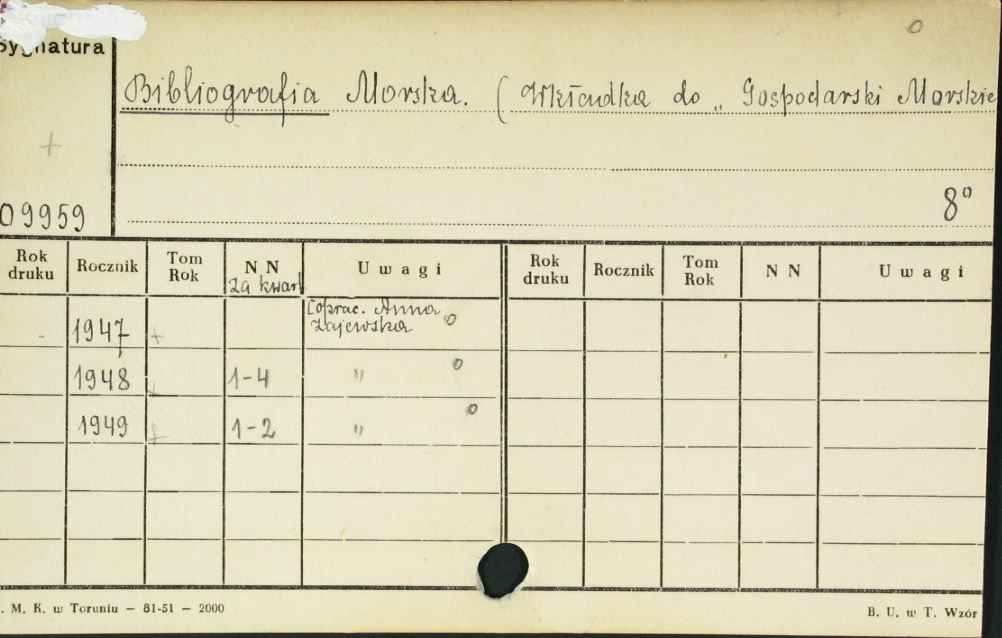 0
Sygnatura
Bibliografia Morska. (Wkładka do „Gospodarski Morskie
+
8°
09959
Rok druku Rocznik Tom Rok N N za kwart Uwagi Rok druku Rocznik Tom Rok N N Uwagi
- 1947 + [oprac. Anna
Zajewska 0
1948 + 1-4 " 0
1949 + 1-2 " 0
. M. K. w Toruniu — 81-51 — 2000 B. U. w T. Wzór